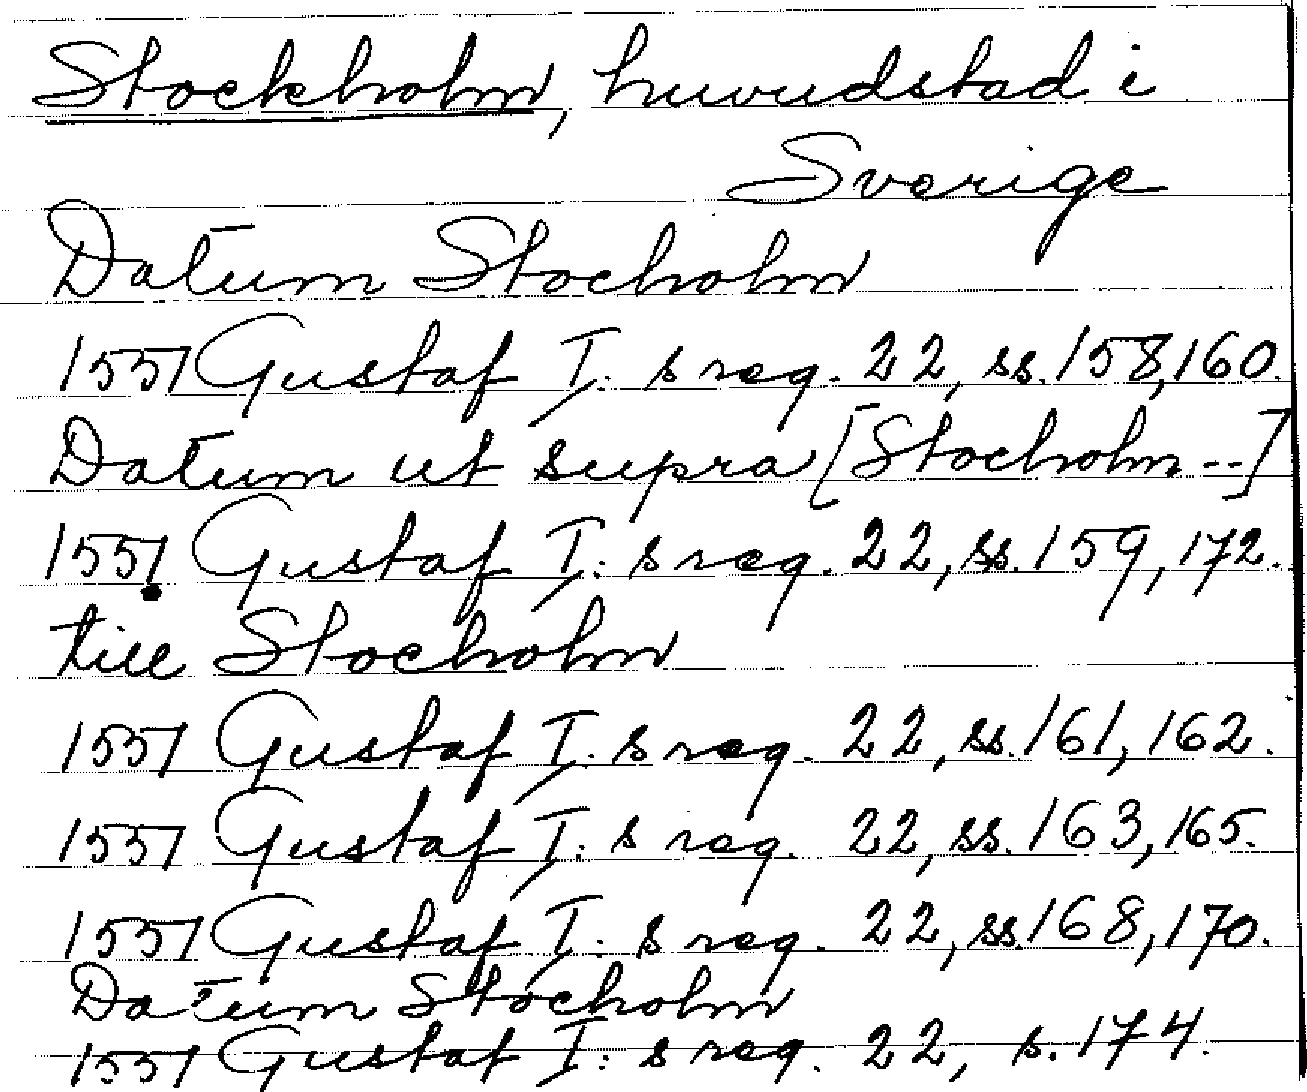 Stockholm, huvudstad i
Sverige
Datum Stocholm
1551 Gustaf I: s reg. 22, ss. 158, 160.
Datum ut supra [Stocholm --]
1551 Gustaf I: s reg. 22, ss. 159, 172.
till Stocholm
1551 Gustaf I: s reg. 22, ss. 161, 162.
1551 Gustaf I: s reg. 22, ss. 163, 165.
1551 Gustaf I: s reg. 22, ss. 168, 170.
Datum Stocholm
1551 Gustaf I: s reg. 22, s. 174.